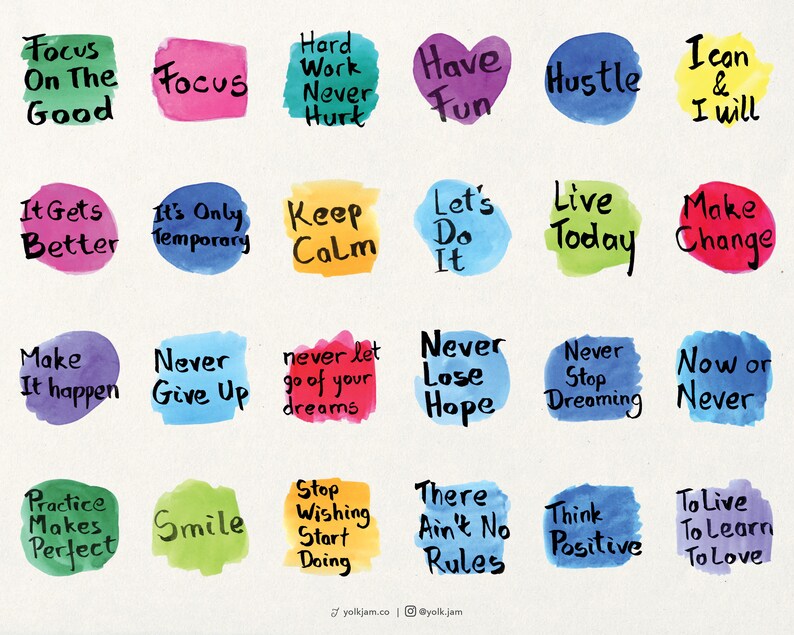 Focus
On The
Good
Focus
Hard
Work
Never
Hurt
Have
Fun
Hustle
I can
&
I will
It Gets
Better
It's Only
Temporary
Keep
Calm
Let's
Do
It
Live
Today
Make
Change
Make
It happen
Never
Give Up
never let
go of your
dreams
Never
Lose
Hope
Never
Stop
Dreaming
Now or
Never
Practice
Makes
Perfect
Smile
Stop
Wishing
Start
Doing
There
Ain't No
Rules
Think
Positive
To Live
To Learn
To Love
yolkjam.co | @yolk.jam